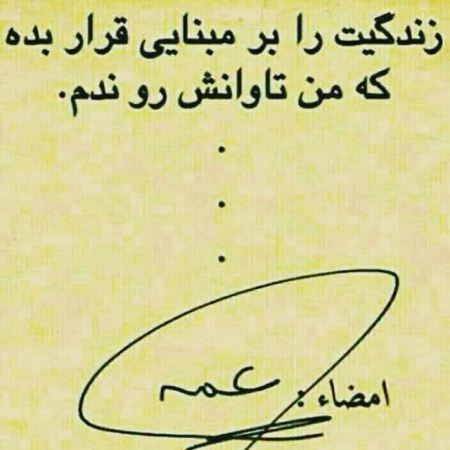 زندگیت را بر مبنایی قرار بده
که من تاوانش رو ندم.
.
.
.
امضاء : عمه